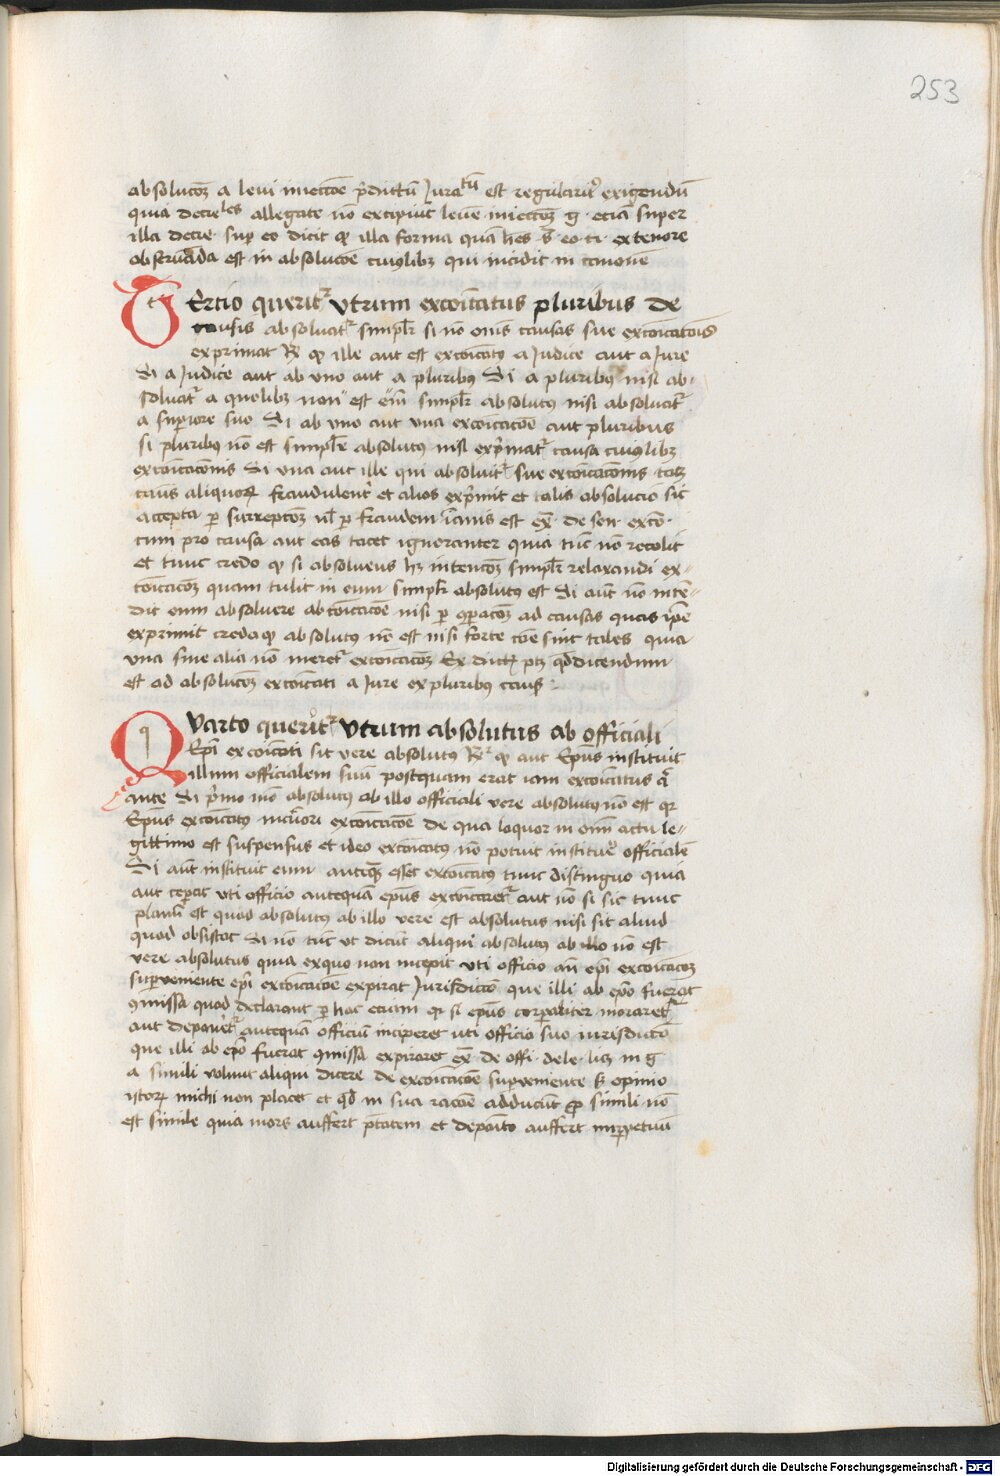 253
absolucōȝ a leui iniectōe p̄dictū Iuratū est regularit᷑ exigendū
quia decretales allegate nō excipiūt leuē iniectōȝ g̅ eciā super
illa decre sup eo dicit ꝙ illa forma quā hēs s̄ eo ti ex tenore
obseruāda est in absolucōe cuiuslibȝ qui incidit in canonē
Tercio querit᷑ vtrum excōicatus pluribus de
causis absoluat᷑ simplr̄ si nō om̄s causas sue excōicacōis
exprimat R̄ ꝙ ille aut est excōicatꝰ a Iudice aut a Iure
Si a Iudice aut ab vno aut a pluribꝰ Si a pluribꝰ nisi ab-
soluat᷑ a quolibȝ non est eīm simplr̄ absolutꝰ nisi absoluat᷑
a supiore suo Si ab vno aut vna excōicacōe aut pluribus
si pluribꝰ nō est simplr̄ absolutꝰ nisi exp̄mat᷑ causa cuiuslibȝ
excōicacōnis Si vna aut ille qui absoluit᷑ sue excōicacōnis tacȝ
causis aliquoꝝ fraudulent᷑ et alios exp̄mit et talis absolucio sic
accepta p̱ surreptōȝ ul̄ p̱ fraudem īanis est ex̄ de sen excō
cum pro causa aut eas tacet ignoranter quia tūc nō recolit
et tunc credo ꝙ si absoluens hȝ intencōȝ simplr̄ relaxandi ex-
cōicacōȝ quam tulit in eum simplr̄ absolutꝰ est Si aūt nō intē-
dit eum absoluere ab cōicacōe nisi p̱ ꝯparacōȝ ad causas quas ip̄e
exprimit credo ꝙ absolutꝰ nō est nisi forte cāe sint tales quia
vna sine alia nō meret᷑ excōicacōȝ Ex dictis ptȝ qđ dicendum
est ad absolucōȝ excōicati a Iure ex pluribꝰ causis
Quarto querit᷑ vtrum absolutus ab officiali
Ep̄i excōicati sit vere absolutꝰ R̄ ꝙ aut Ep̄us instituit
illum officialem suū postquam erat iam excōicatus aut
ante Si p̄mo mō absolutꝰ ab illo officiali vere absolutꝰ nō est qr
Ep̄us excōicatꝰ maiori excōicacōe de qua loquor in om̄i actu le-
gittimo est suspensus et ideo excōicatꝰ nō potuit instituere officialē
Si aūt instituit eum anteqȝ esset excōicatꝰ tunc distinguo quia
aut ceperat vti officio antequā ep̄us excōicaret᷑ aut nō si sic tunc
planū est quod absolutꝰ ab illo vere est absolutus nisi sit aliud
quod obsistat Si nō tūc ut dicūt aliqui absolutꝰ ab illo nō est
vere absolutus quia exquo non incepit vti officio an̄ ep̄i excōicacōȝ
superueniente ep̄i excōicacōe expirat Iurisdictio que illi ab ep̄o fuerat
ꝯmissa quod declarant p̱ hac eciam qr si ep̄us corporaliter moraret᷑
aut deponeret᷑ antequā officiū inciperet uti officio suo iurisdictō
que illi ab ep̄o fuerat ꝯmissa expiraret ex̄ de offi dele licȝ in g̅
a simili volunt aliqui dicere de excōicacōe superueniente sȝ opinio
istoꝝ michi non placet et qđ in sua racōe adducūt p̱ simili nō
est simile quia mors auffert p̄tatem et depositō auffert inp̱petuū
Digitalisierung gefördert durch die Deutsche Forschungsgemeinschaft - DFG